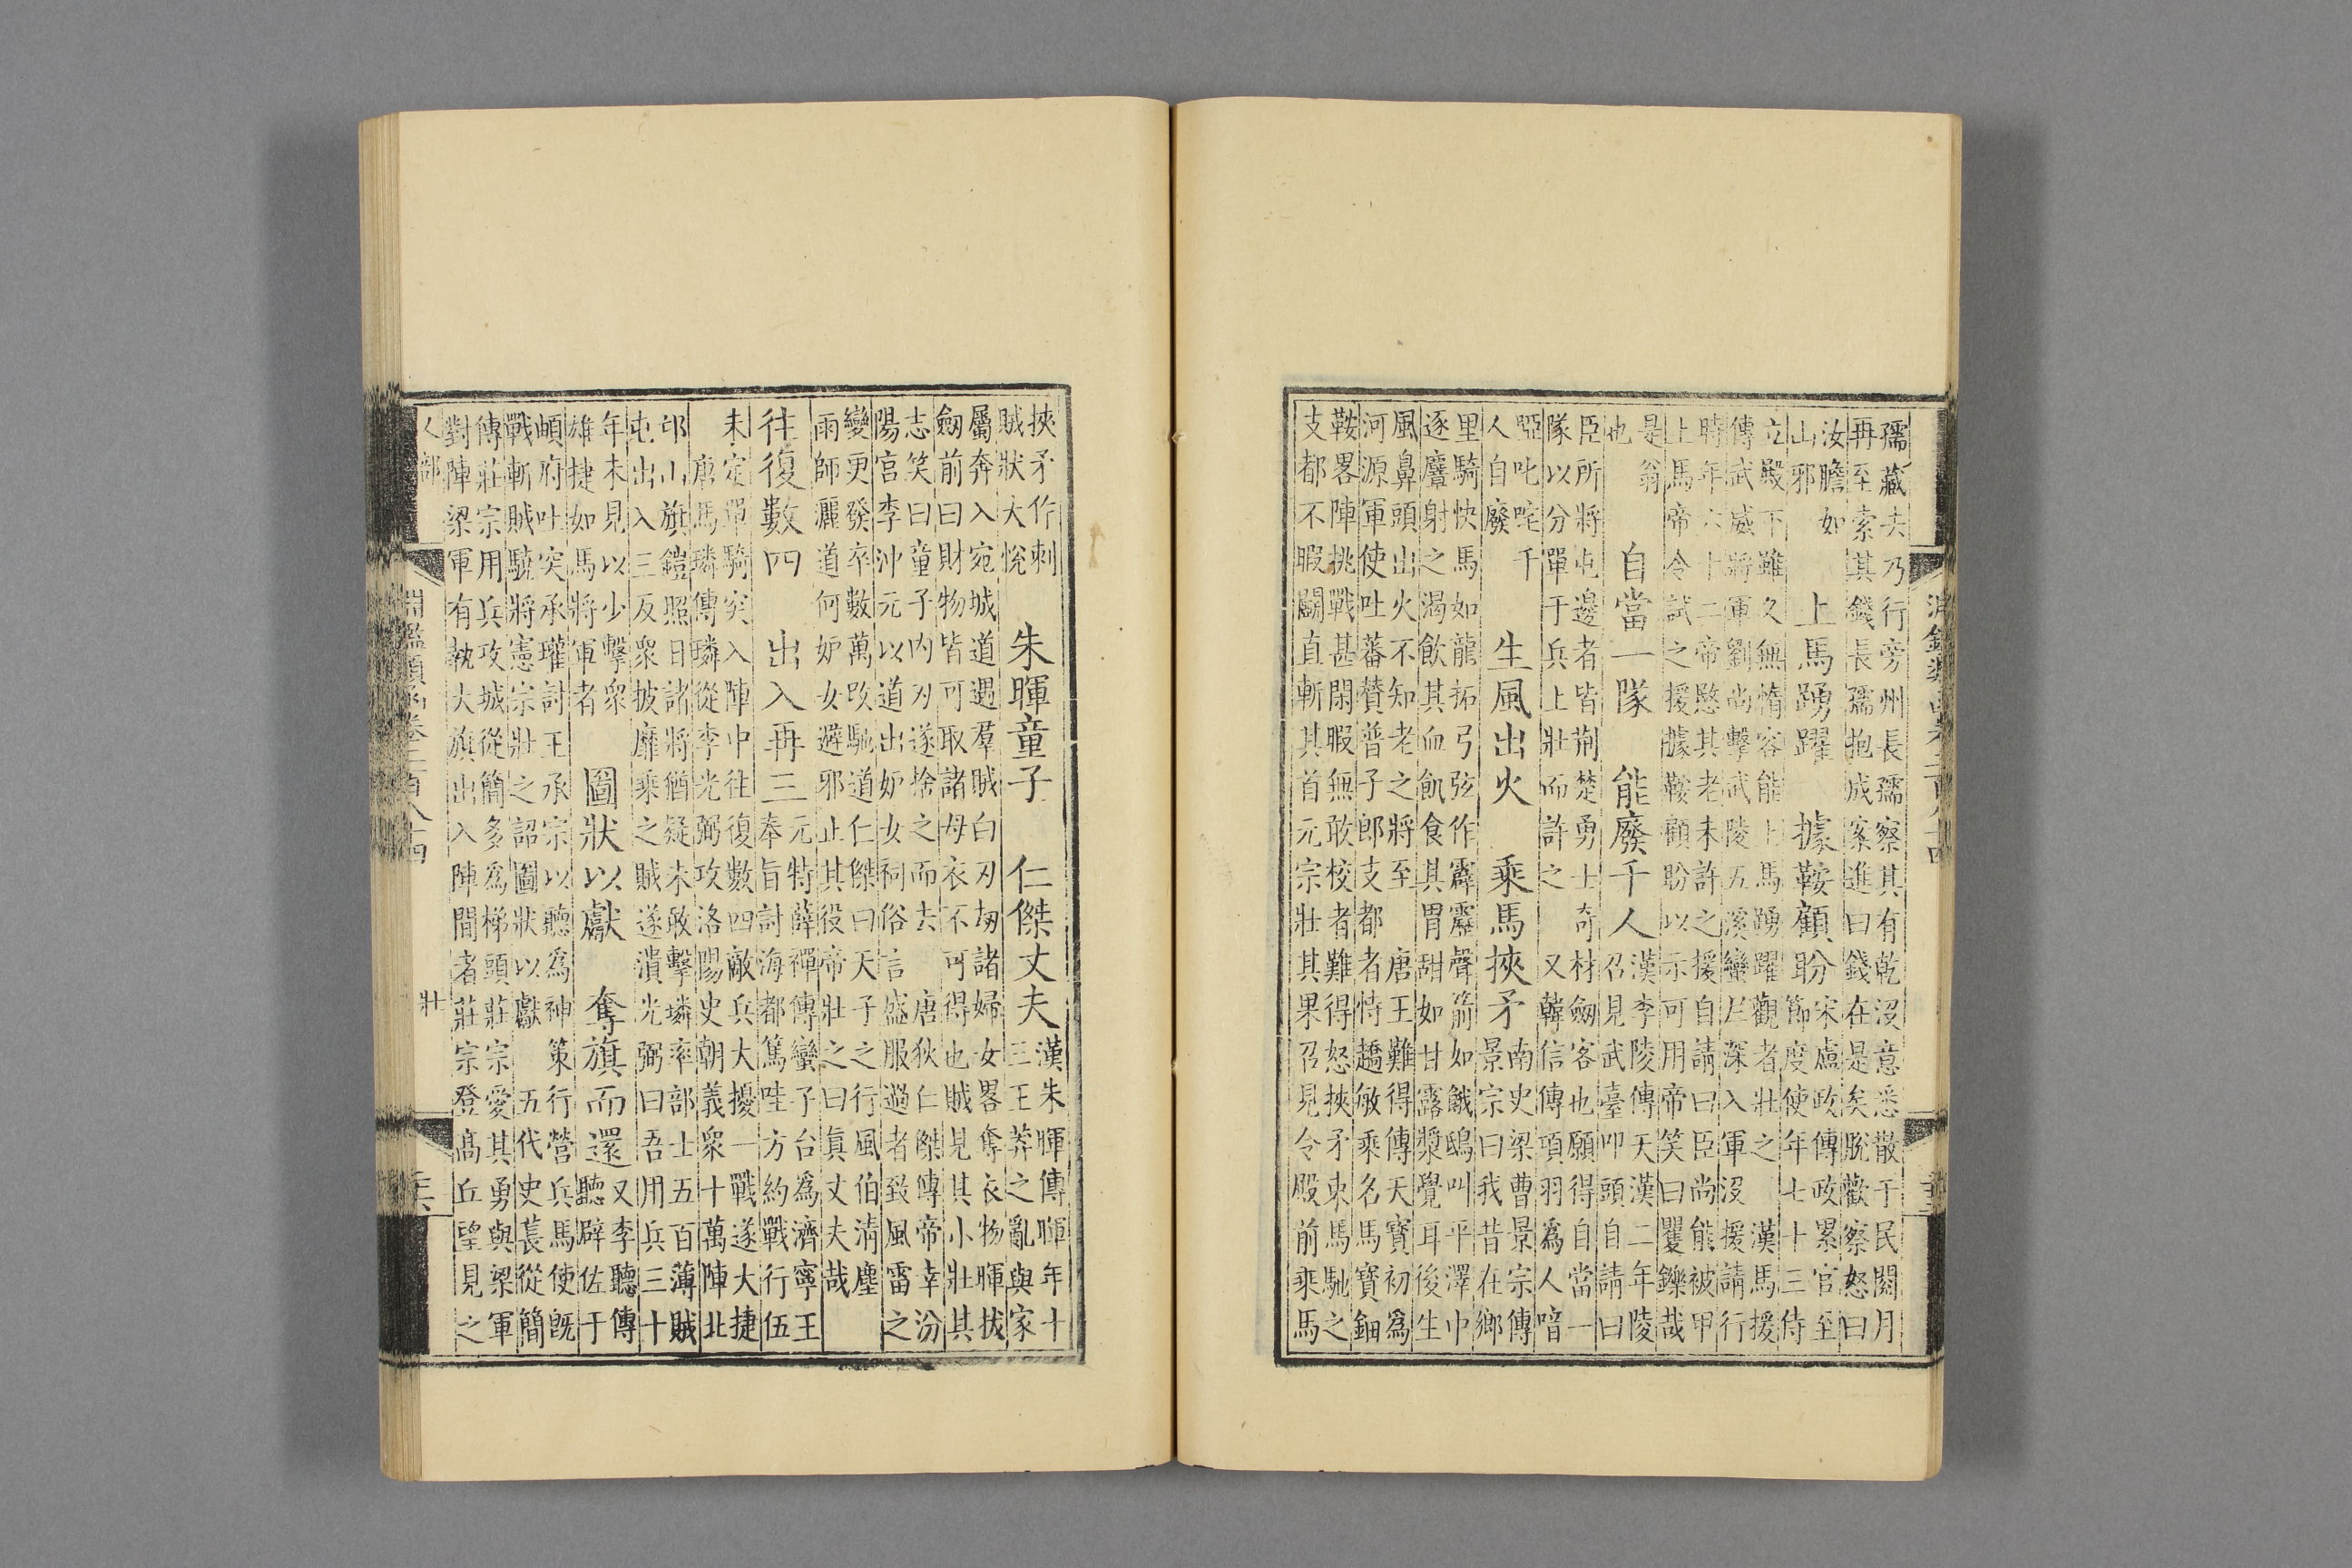 孺藏去乃行旁州長孺察其有乾沒意悉散于民閱月
再至索其錢長孺抱成案進曰錢在是矣脫歡察怒曰
汝膽如
山邪
上馬踴躍 據鞍顧盼
宋盧政傳政累官至
節度使年七十三侍
立殿下雖久無惰容能上馬踴躍觀者壯之 漢馬援
傳武威將軍劉尚擊武陵五溪蠻深入軍沒援請行
時年六十二帝愍其老未許之援自請曰臣尚能被甲
上馬帝令試之援據鞍顧盼以示可用帝笑曰矍鑠哉
是翁
也
自當一隊 能廢千人
漢李陵傳天漢二年陵
召見武臺叩頭自請曰
臣所將屯邊者皆荆楚勇士奇材劔客也願得自當一
隊以分單于兵上壯而許之 又韓信傳項羽爲人喑
啞叱咤千
人自廢
生風出火 乘馬挾矛
南史梁曹景宗傳
景宗曰我昔在鄉
里騎快馬如龍拓弓弦作霹靂聲箭如餓鴟叫平澤中
逐麞射之渴飲其血飢食其胃甜如甘露漿覺耳後生
風鼻頭出火不知老之將至 唐王難得傳天寶初爲
河源軍使吐蕃贊普子郎支都者恃趫敏乘名馬寶鈿
鞍畧陣挑戰甚閑暇無敢校者難得怒挾矛束馬馳之
支都不暇鬭直斬其首元宗壯其果召見令殿前乘馬
挾矛作刺
賊狀大悅
朱暉童子 仁傑丈夫
漢朱暉傳暉年十
三王莽之亂與家
屬奔入宛城道遇羣賊白刃刼諸婦女畧奪衣物暉拔
劔前曰財物皆可取諸母衣不可得也賊見其小壯其
志笑曰童子內刃遂捨之而去 唐狄仁傑傳帝幸汾
陽宮李沖元以道出妒女祠俗言盛服過者致風雷之
變更發卒數萬改馳道仁傑曰天子之行風伯淸塵
雨師灑道何妒女避邪止其役帝壯之曰眞丈夫哉
往復數四 出入再三
元特薛禪傳蠻子台爲濟寧王
奉旨討海都篤哇方約戰行伍
未定單騎突入陣中往復數四敵兵大擾一戰遂大捷
唐馬璘傳璘從李光弼攻洛陽史朝義衆十萬陣北
邙山旗鎧照日諸將猶疑未敢擊璘率部士五百薄賊
屯出入三反衆披靡乘之賊遂潰光弼曰吾用兵三十
年未見以少擊衆
雄捷如馬將軍者
圖狀以獻 奪旗而還
又李聽傳
聽辟佐于
頔府吐突承璀討王承宗以聽爲神策行營兵馬使旣
戰斬賊驍將憲宗壯之詔圖狀以獻 五代史萇從簡
傳莊宗用兵攻城從簡多爲梯頭莊宗愛其勇與梁軍
對陣梁軍有執大旗出入陣間者莊宗登高丘望見之
人部
淵鑑類函卷二百八十四
壯